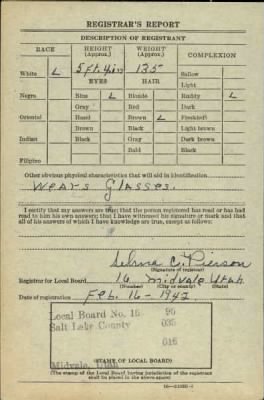 REGISTRAR'S REPORT
DESCRIPTION OF REGISTRANT
RACE HEIGHT (Approx.) WEIGHT (Approx.) COMPLEXION
White ✓ 5 ft. 4 in 135 Sallow
EYES HAIR Light
Negro Blue ✓ Blonde Ruddy ✓
Gray Red Dark
Oriental Hazel Brown ✓ Freckled
Brown Black Light brown
Indian Black Gray Dark brown
Bald Black
Filipino
Other obvious physical characteristics that will aid in identification
Wears Glasses.
I certify that my answers are true; that the person registered has read or has had
read to him his own answers; that I have witnessed his signature or mark and that
all of his answers of which I have knowledge are true, except as follows:
C. Pierson
(Signature of registrar)
Registrar for Local Board 16 Midvale Utah
(Number) (City or county) (State)
Date of registration Feb. 16 - 1942
Local Board No. 16 90
Salt Lake County 035
016
Midvale, Utah
(STAMP OF LOCAL BOARD)
(The stamp of the Local Board having jurisdiction of the registrant
shall be placed in the above space.)